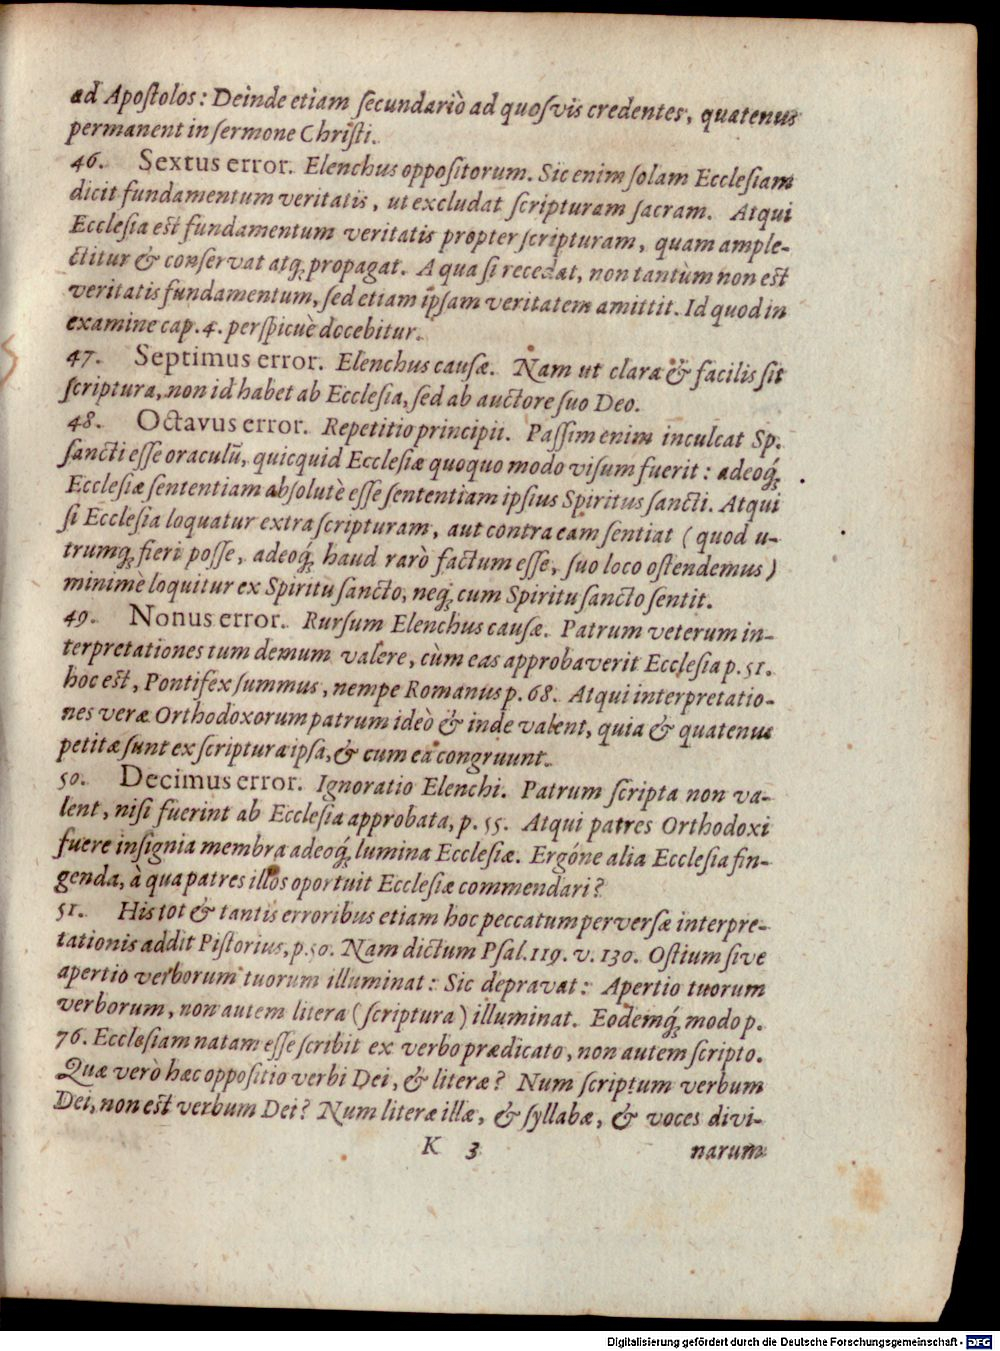 ad Apoſtolos: Deinde etiam ſecundariò ad quoſvis credentes, quatenus
permanent in ſermone Chriſti.
46. Sextus error. Elenchus oppoſitorum. Sic enim ſolam Eccleſiam
dicit fundamentum veritatis, ut excludat ſcripturam ſacram. Atqui
Eccleſia eſt fundamentum veritatis propter ſcripturam, quam ample-
ctitur & conſervat atq́; propagat. A qua ſi recedat, non tantùm non eſt
veritatis fundamentum, ſed etiam ipſam veritatem amittit. Id quod in
examine cap. 4. perſpicuè docebitur.
47. Septimus error. Elenchus cauſæ. Nam ut clara & facilis ſit
ſcriptura, non id habet ab Eccleſia, ſed ab auctore ſuo Deo.
48. Octavus error. Repetitio principii. Paſſim enim inculcat Sp.
ſancti eſſe oraculũ, quicquid Eccleſiæ quoquo modo viſum fuerit: adeoq́;
Eccleſiæ ſententiam abſolutè eſſe ſententiam ipſius Spiritus ſancti. Atqui
ſi Eccleſia loquatur extra ſcripturam, aut contra eam ſentiat (quod u-
trumq́; fieri poſſe, adeoq́; haud rarò factum eſſe, ſuo loco oſtendemus)
minimè loquitur ex Spiritu ſancto, neq́; cum Spiritu ſancto ſentit.
49. Nonus error. Rurſum Elenchus cauſæ. Patrum veterum in-
terpretationes tum demum valere, cùm eas approbaverit Eccleſia p. 51.
hoc eſt, Pontifex ſummus, nempe Romanus p. 68. Atqui interpretatio-
nes veræ Orthodoxorum patrum ideò & inde valent, quia & quatenus
petitæ ſunt ex ſcriptura ipſa, & cum ea congruunt.
50. Decimus error. Ignoratio Elenchi. Patrum ſcripta non va-
lent, niſi fuerint ab Eccleſia approbata, p. 55. Atqui patres Orthodoxi
fuere inſignia membra adeoq́; lumina Eccleſiæ. Ergóne alia Eccleſia fin-
genda, à qua patres illos oportuit Eccleſiæ commendari?
51. His tot & tantis erroribus etiam hoc peccatum perverſæ interpre-
tationis addit Piſtorius, p. 50. Nam dictum Pſal. 119. v. 130. Oſtium ſive
apertio verborum tuorum illuminat: Sic depravat: Apertio tuorum
verborum, non autem litera (ſcriptura) illuminat. Eodemq́; modo p.
76. Eccleſiam natam eſſe ſcribit ex verbo prædicato, non autem ſcripto.
Quæ verò hæc oppoſitio verbi Dei, & literæ? Num ſcriptum verbum
Dei, non eſt verbum Dei? Num literæ illæ, & ſyllabæ, & voces divi-
K 3 narum
Digitalisierung gefördert durch die Deutsche Forschungsgemeinschaft - DFG